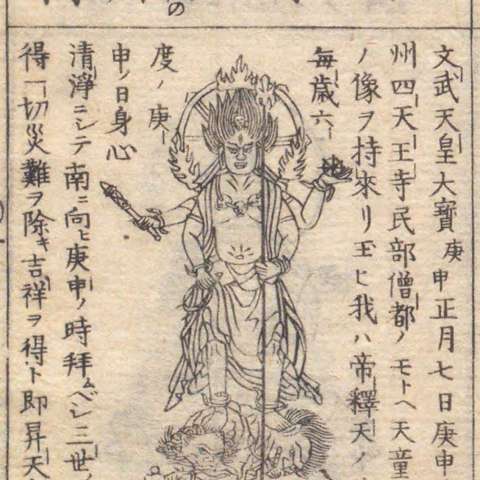 文武天皇大寶庚申正月七日庚申
州四天王寺民部僧都ノモトヘ天童
ノ像ヲ持來リ玉ヒ我ハ帝釋天ノ
每歳六
度ノ庚
申ノ日身心
清淨ニシテ南ニ向ヒ庚申ノ時拜ムベシ三世ノ
得一切災難ヲ除キ吉祥ヲ得ト即昇天